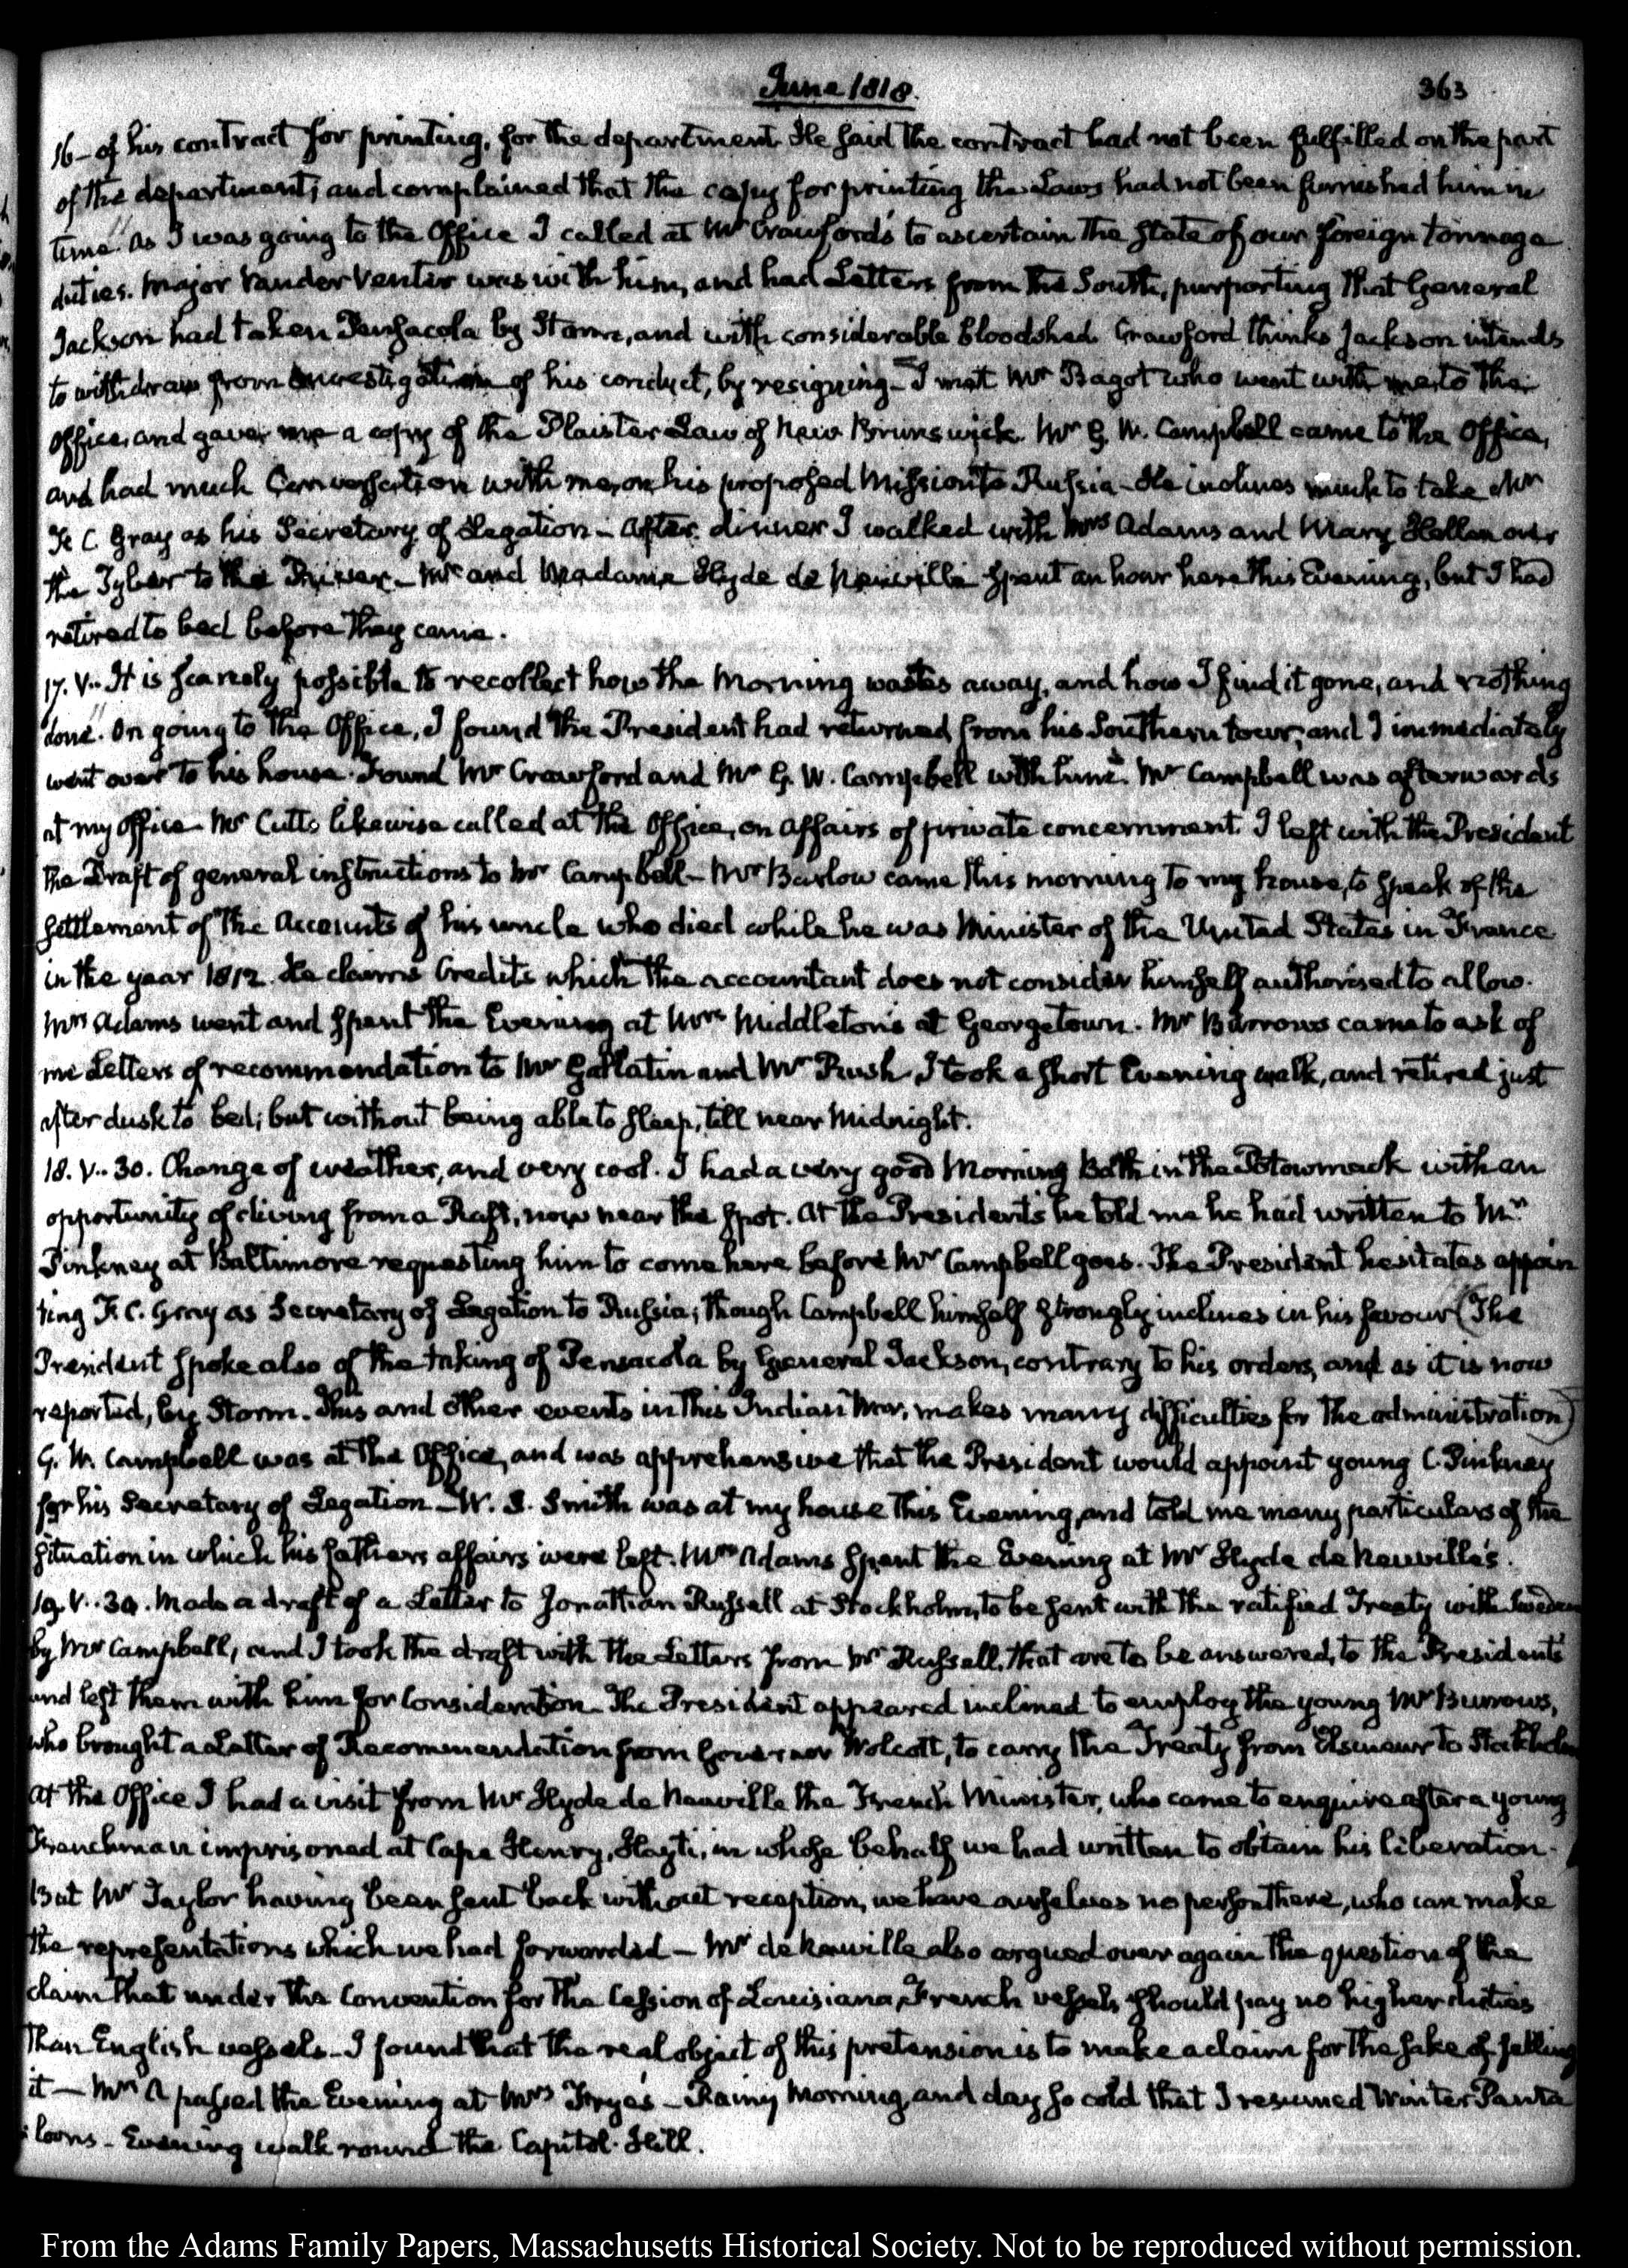 June 1818.
363
16– of his contract for printing, for the department. He said the contract had not been fulfilled on the part
of the department; and complained that the copy for printing the Laws had not been furnished him in
time. As I was going to the Office I called at Mr Crawford's to ascertain the state of our foreign tonnage
duties. Major Vander Venter was with him, and had Letters from the South, purporting that General
Jackson had taken Pensacola by Storm, and with considerable bloodshed. Crawford thinks Jackson intends
to withdraw from investigation of his conduct, by resigning– I met Mr Bagot who went with me to the
Office, and gave me a copy of the Plaister Law of New Brunswick. Mr G. W. Campbell came to the Office,
and had much Conversation with me, on his proposed Mission to Russia– He inclines much to take Mr
F. C. Gray as his Secretary of Legation– After dinner I walked with Mrs Adams and Mary Hellen over
the Tyber to the River– Mr and Madame Hyde de Neuville spent an hour here this Evening, but I had
retired to bed before they came.
17. V.. It is scarcely possible to recollect how the Morning wastes away, and how I find it gone, and nothing
done. On going to the Office, I found the President had returned from his Southern tour, and I immediately
went over to his house. Found Mr Crawford and Mr G. W. Campbell with him. Mr Campbell was afterwards
at my Office– Mr Cutts likewise called at the Office, on affairs of private concernment. I left with the President
the Draft of general instructions to Mr Campbell– Mr Barlow came this morning to my house, to speak of the
settlement of the Accounts of his uncle who died while he was Minister of the United States in France
in the year 1812. He claims Credits which the accountant does not consider himself authorised to allow.
Mrs Adams went and spent the Evening at Mrs Middleton's at Georgetown. Mr Burrows came to ask of
me Letters of recommendation to Mr Gallatin and Mr Rush. I took a short Evening walk, and retired just
after dusk to bed; but without being able to sleep, till near Midnight.
18. V..30. Change of weather, and very cool. I had a very good Morning Bath in the Potowmack with an
opportunity of diving from a Raft, now near the spot. At the President's he told me he had written to Mr
Pinkney at Baltimore requesting him to come here before Mr Campbell goes. The President hesitates appoin
ting F. C. Gray as Secretary of Legation to Russia; though Campbell himself strongly inclines in his favour (The
President spoke also of the taking of Pensacola by General Jackson, contrary to his orders, and as it is now
reported, by Storm. This and other events in this Indian War, makes many difficulties for the administration)
G. W. Campbell was at the Office, and was apprehensive that the President would appoint young C. Pinkney
for his Secretary of Legation– W. S. Smith was at my house this Evening, and told me many particulars of the
situation in which his fathers affairs were left. Mrs Adams spent the Evening at Mr Hyde de Neuville's.
19. V..30. Made a draft of a Letter to Jonathan Russell at Stockholm, to be sent with the ratified Treaty with Sweden
by Mr Campbell, and I took the draft with the Letters from Mr Russell, that are to be answered, to the Presidents
and left them with him for Consideration– The President appeared inclined to employ the young Mr Burrows,
who brought a Letter of Recommendation from Governor Wolcott, to carry the Treaty from Elsineur to Stockholm
At the Office I had a visit from Mr Hyde de Neuville the French Minister, who came to enquire after a young
Frenchman imprisoned at Cape Henry, Hayti, in whose behalf we had written to obtain his liberation.
But Mr Taylor having been sent back without reception, we have ourselves no person there, who can make
the representations which we had forwarded– Mr de Neuville also argued over again the question of the
claim that under the Convention for the Cession of Louisiana, French vessels should pay no higher duties
than English vessels– I found that the real object of this pretension is to make a claim for the sake of selling
it– Mrs A passed the Evening at Mrs Frye's– Rainy Morning, and day so cold that I resumed Winter Panta
loons– Evening walk round the Capitol-Hill.
From the Adams Family Papers, Massachusetts Historical Society. Not to be reproduced without permission.